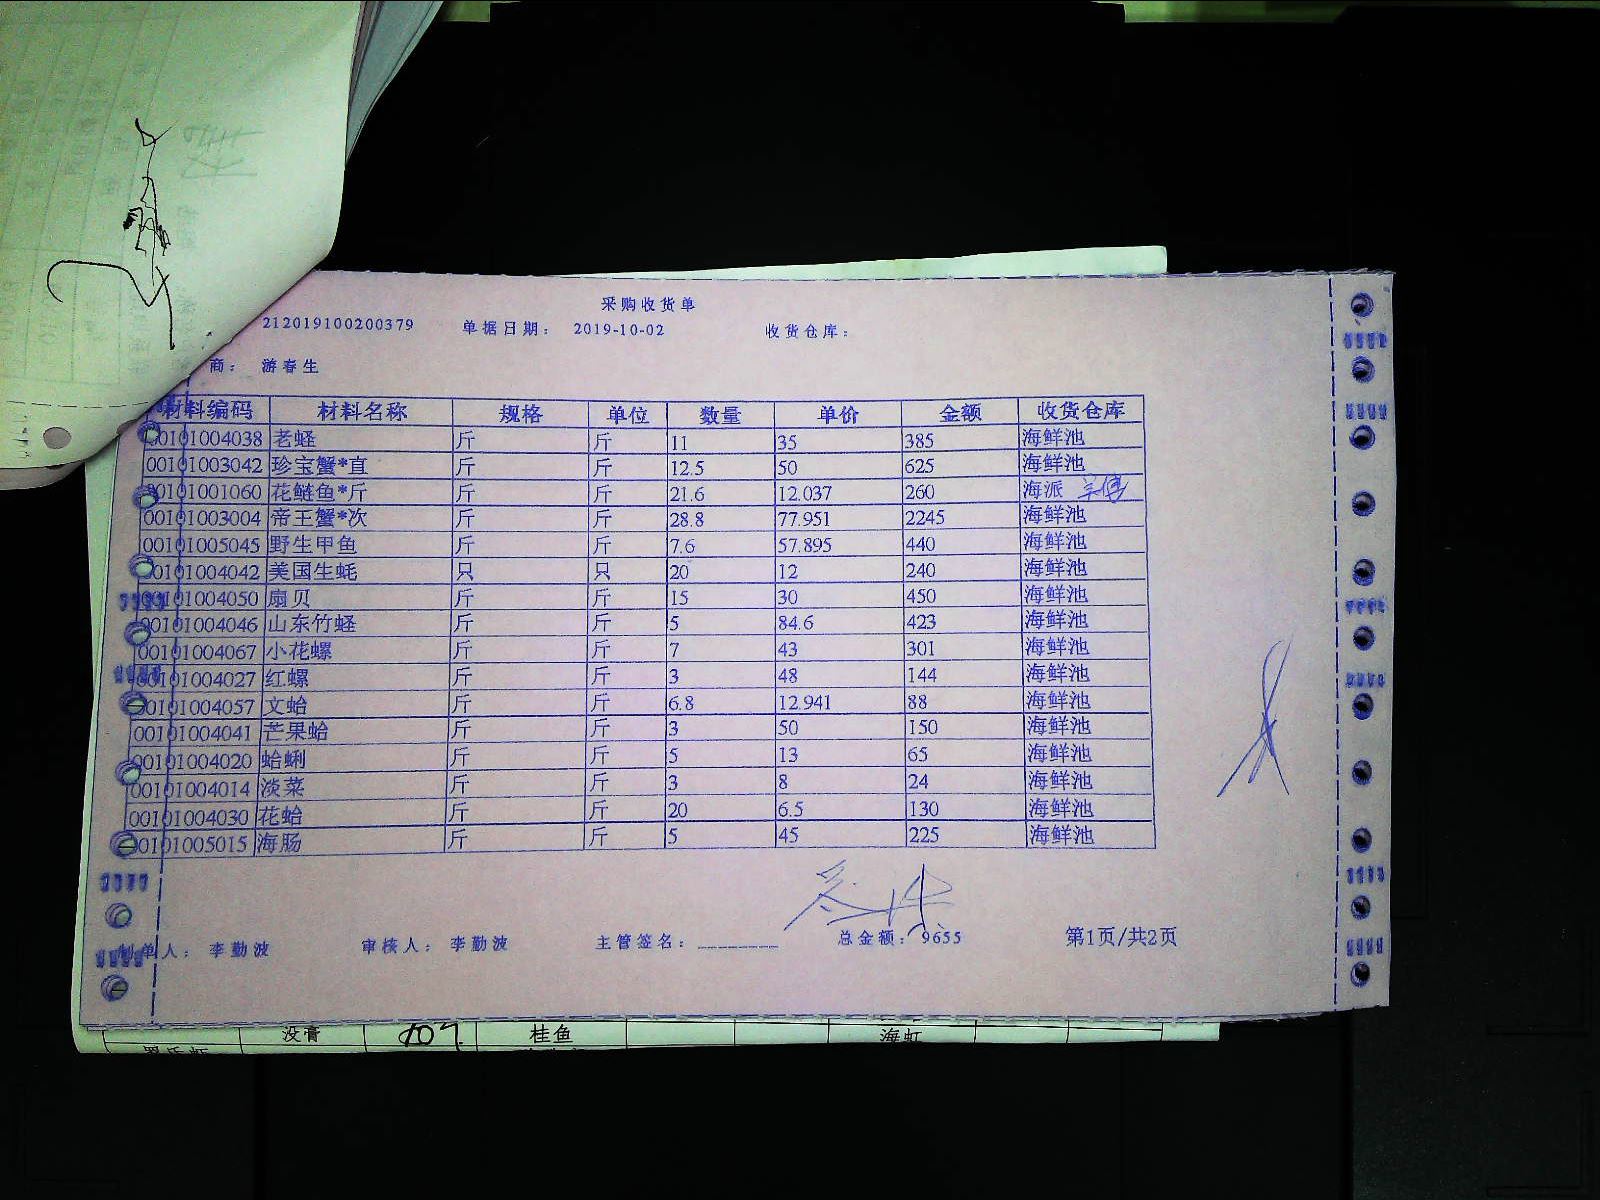 采购收货单
212019100200379 单据日期： 2019-10-02 收货仓库：
商： 游春生
材料编码 材料名称 规格 单位 数量 单价 金额 收货仓库
00101004038 老蛏 斤 斤 11 35 385 海鲜池
00101003042 珍宝蟹*直 斤 斤 12.5 50 625 海鲜池
00101001060 花鲢鱼*斤 斤 斤 21.6 12.037 260 海派
00101003004 帝王蟹*次 斤 斤 28.8 77.951 2245 海鲜池
00101005045 野生甲鱼 斤 斤 7.6 57.895 440 海鲜池
00101004042 美国生蚝 只 只 20 12 240 海鲜池
00101004050 扇贝 斤 斤 15 30 450 海鲜池
00101004046 山东竹蛏 斤 斤 5 84.6 423 海鲜池
00101004067 小花螺 斤 斤 7 43 301 海鲜池
00101004027 红螺 斤 斤 3 48 144 海鲜池
00101004057 文蛤 斤 斤 6.8 12.941 88 海鲜池
00101004041 芒果蛤 斤 斤 3 50 150 海鲜池
00101004020 蛤蜊 斤 斤 5 13 65 海鲜池
00101004014 淡菜 斤 斤 3 8 24 海鲜池
00101004030 花蛤 斤 斤 20 6.5 130 海鲜池
00101005015 海肠 斤 斤 5 45 225 海鲜池
制单人： 李勤波 审核人： 李勤波 主管签名：________ 总金额： 9655 第1页/共2页
没膏 桂鱼 海虹